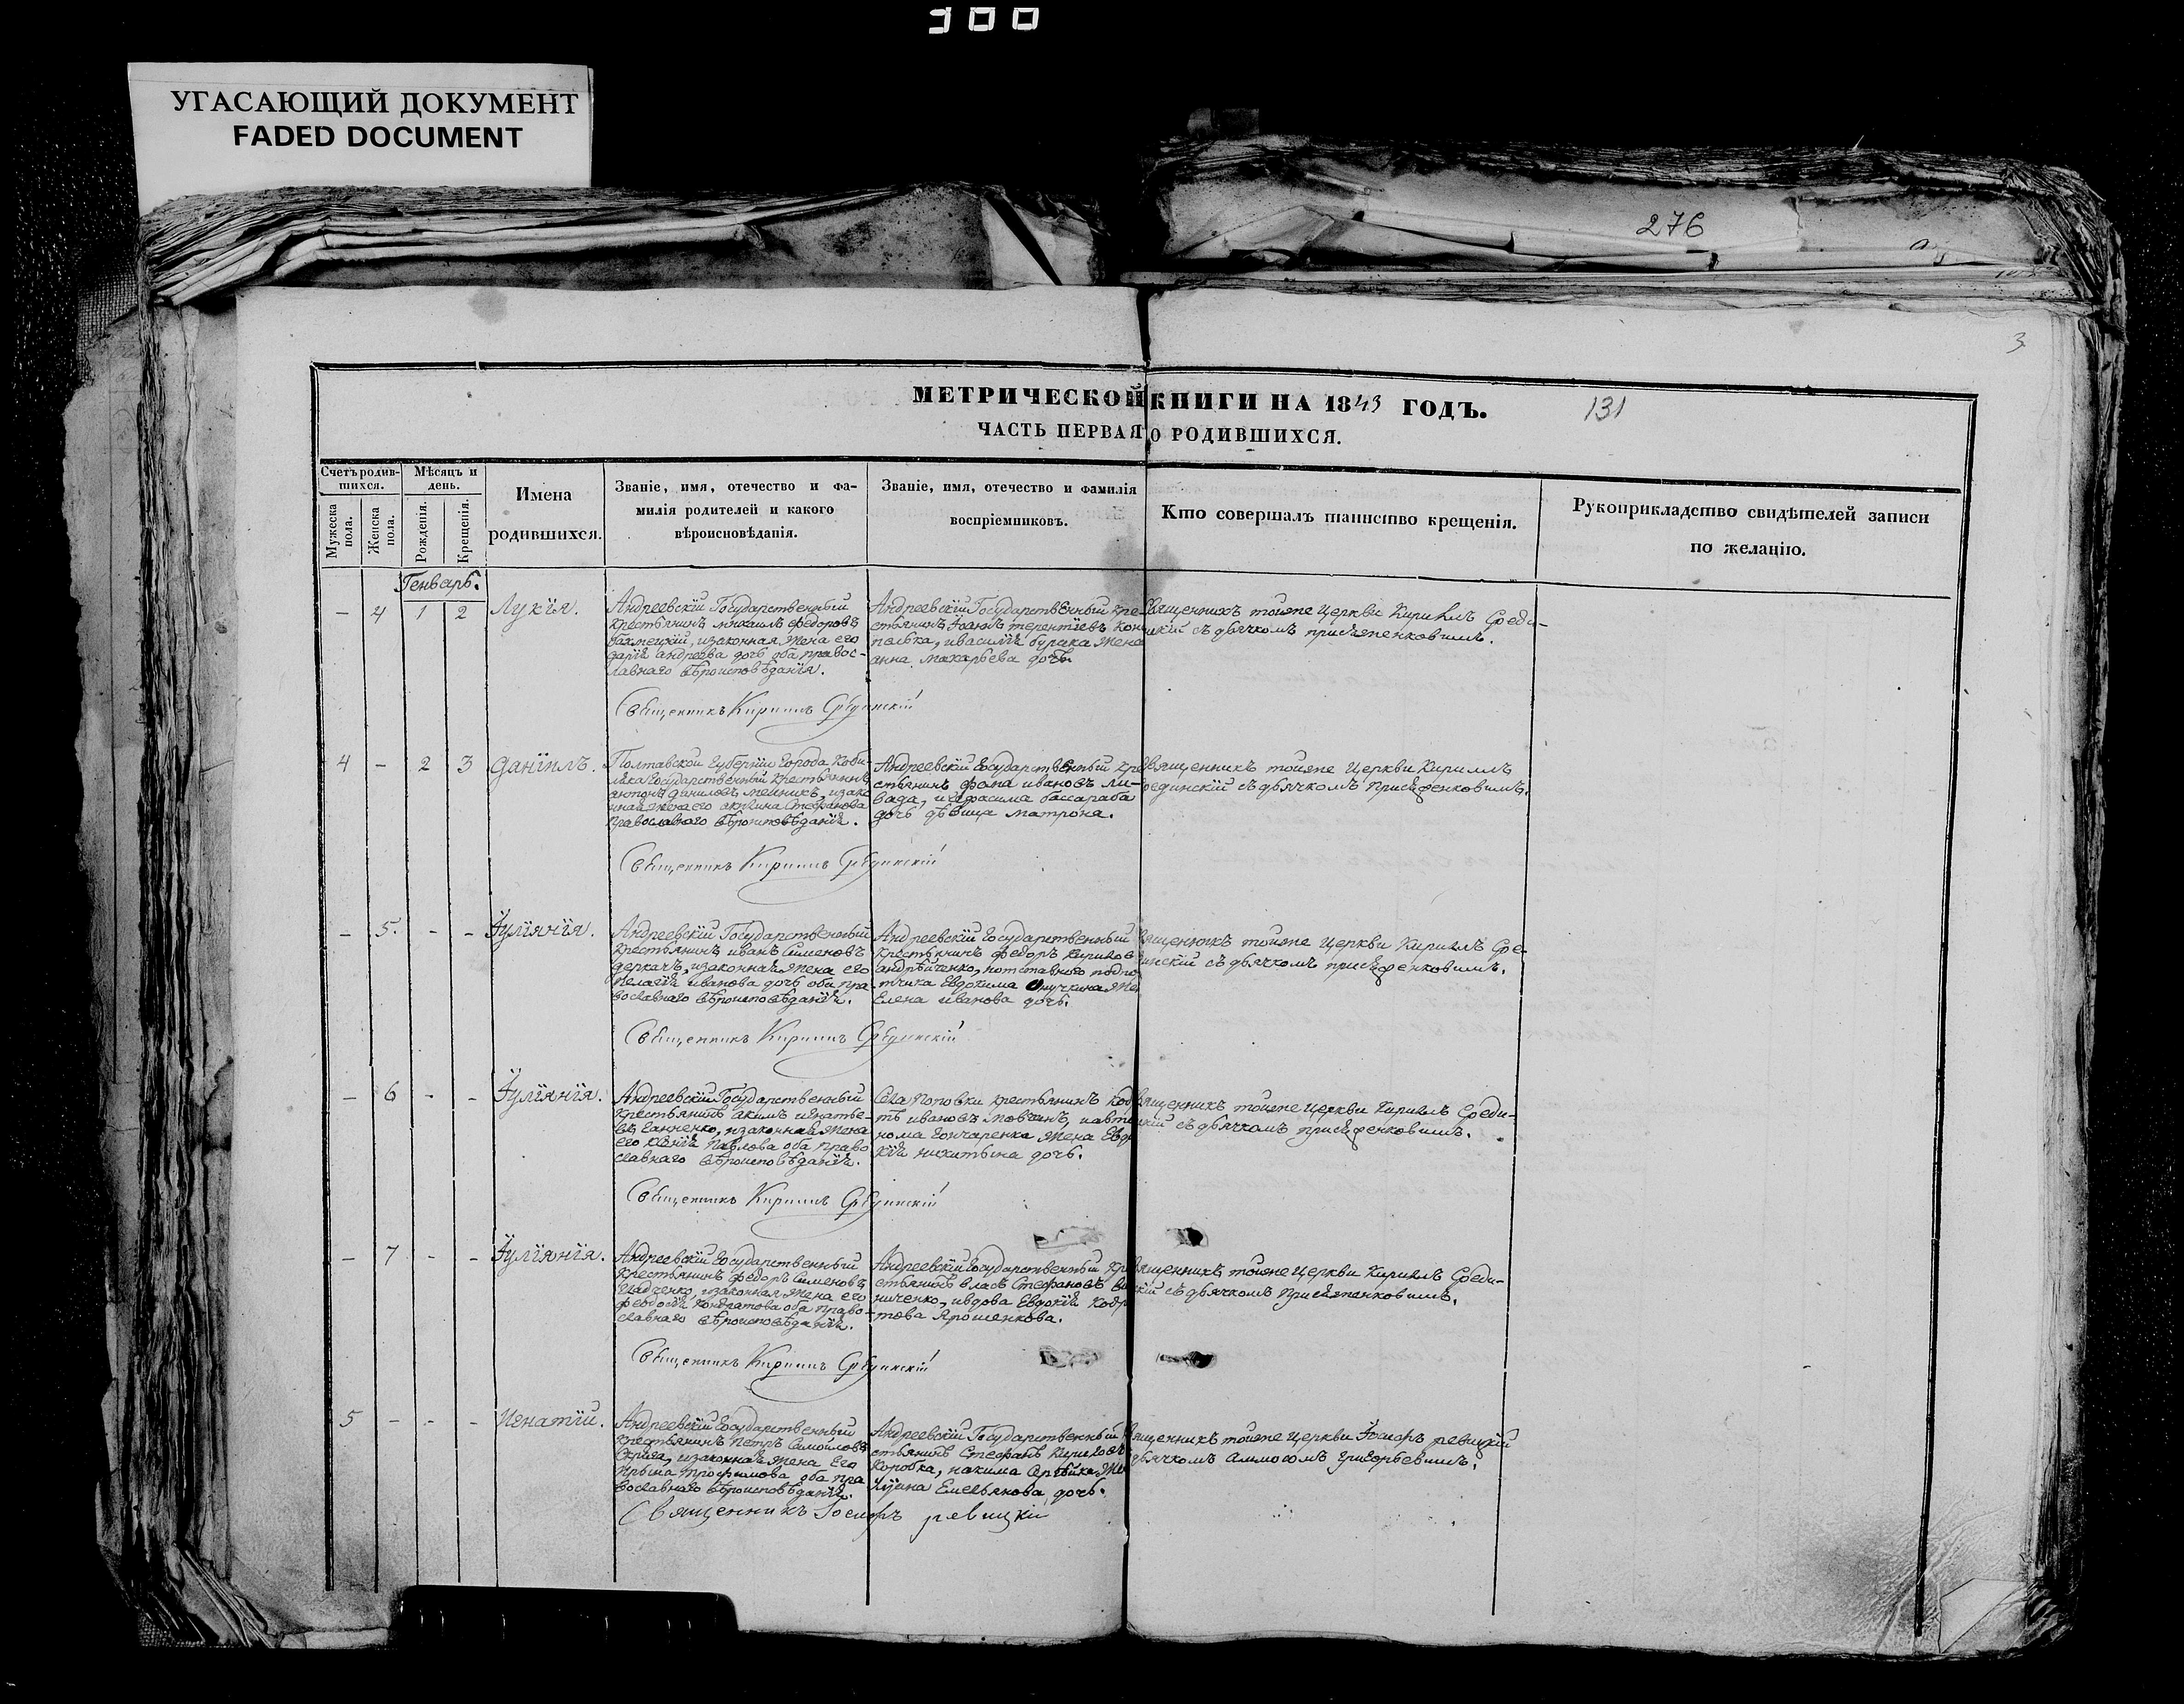 300
УГАСАЮЩИЙ ДОКУМЕНТ
FADED DOCUMENT
276
3
МЕТРИЧЕСКОЙ КНИГИ НА 1843 ГОДЪ.
131
ЧАСТЬ ПЕРВАЯ О РОДИВШИХСЯ.
Счетъ родив-
шихся.
Мужеска пола.
Женска пола.
Мѣсяцъ и
день.
Рожденія.
Крещенія.
Имена
родившихся.
Званіе, имя, отечество и фа-
милія родителей и какого
вѣроисповѣданія.
Званіе, имя, отечество и фамилія
воспріемниковъ.
Кто совершалъ таинство крещенія.
Рукоприкладство свидѣтелей записи
по желанію.
Генварь.
- 4 1 2 Лукія.
Андреевскій Государственный
крестьянинъ михаилъ федоровъ
бахмецкій, изаконная жена его
дарія андреева дочь оба правос-
лавнаго вѣроисповѣданія.
Андреевскій Государственный кре-
стьянинъ Іоаннъ терентіевъ
пелька, ивасилія бурлака жена
анна макарьева дочь.
священникъ тойже Церкви Кириллъ Среди-
нскій съ дьячкомъ
Священникъ Кириллъ Срединскій
4 - 2 3 Даніилъ.
Полтавской Губерніи города Кобы-
ляка Государственный крестьянинъ
антонъ даниловъ мельникъ, изако
ная жена его акулина Стефанова
православнаго вѣроисповѣданія.
Андреевскій Государственный кре
стьянинъ фома ивановъ ли-
вада, и герасима бассараба
дочь дѣвица матрона.
священникъ тойже Церкви Кириллъ
Срединскій съ дьячкомъ
Священникъ Кириллъ Срединскій
- 5. - - Іуліянія.
Андреевскій Государственный
крестьянинъ иванъ Сименовъ
деркачъ, изаконная жена его
пелагія иванова дочь оба пра
вославнаго вѣроисповѣданія.
Андреевскій Государственный
крестьянинъ федоръ Кирилов
андрѣйченко,
Евдокима Онучкина жен
Елена иванова дочь.
священникъ тойже Церкви Кириллъ Сре-
динскій съ дьячкомъ
Священникъ Кириллъ Срединскій
- 6 - - Іуліянія.
Андреевскій Государственный
крестьянинъ акимъ игнатье-
въ Ганненко, изаконная жена
его Павлова оба право
славнаго вѣроисповѣданія.
Села поповки крестьянинъ Код
тъ ивановъ мовчанъ, иавто
нома Гончаренка жена Евдо
кія никитина дочь.
священникъ тойже Церкви Кириллъ Среди-
нскій съ дьячкомъ
Священникъ Кириллъ Срединскій
- 7 - - Іуліянія.
Андреевскій Государственный
крестьянинъ федоръ Сименовъ
изаконная жена его
феодосія Кондратова оба право-
славнаго вѣроисповѣданія.
Андреевскій Государственный кре
стьянинъ власъ Стефановъ
ниченко, ивдова Евдокія Кодра
това Ярошенкова.
священникъ тойже Церкви Кириллъ Среди-
нскій съ дьячкомъ
Священникъ Кириллъ Срединскій
5 - - - Игнатій.
Андреевскій Государственный
крестьянинъ петръ Самойловъ
изаконная жена Его
Ирына трофимова оба пра
вославнаго вѣроисповѣданія.
Андреевскій Государственный
стьянинъ Стефанъ Кириловъ
Коробка, иакима Сергѣйка же
Емельянова дочь.
священникъ тойже Церкви Іосифъ ревицкій
дьячкомъ григорьевимъ.
Священникъ Іосифъ ревицкій